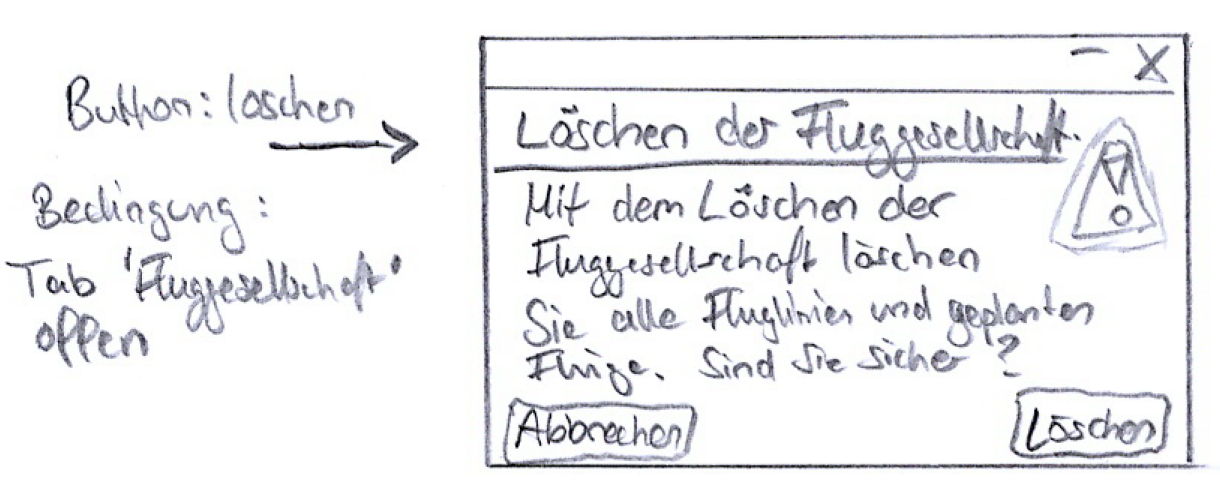 Button: löschen
Bedingung:
Tab 'Fluggesellschaft'
offen
– X
Löschen der Fluggesellschaft.
Mit dem Löschen der
Fluggesellschaft löschen
Sie alle Fluglinien und geplanten
Flüge. Sind Sie sicher?
Abbrechen
Löschen